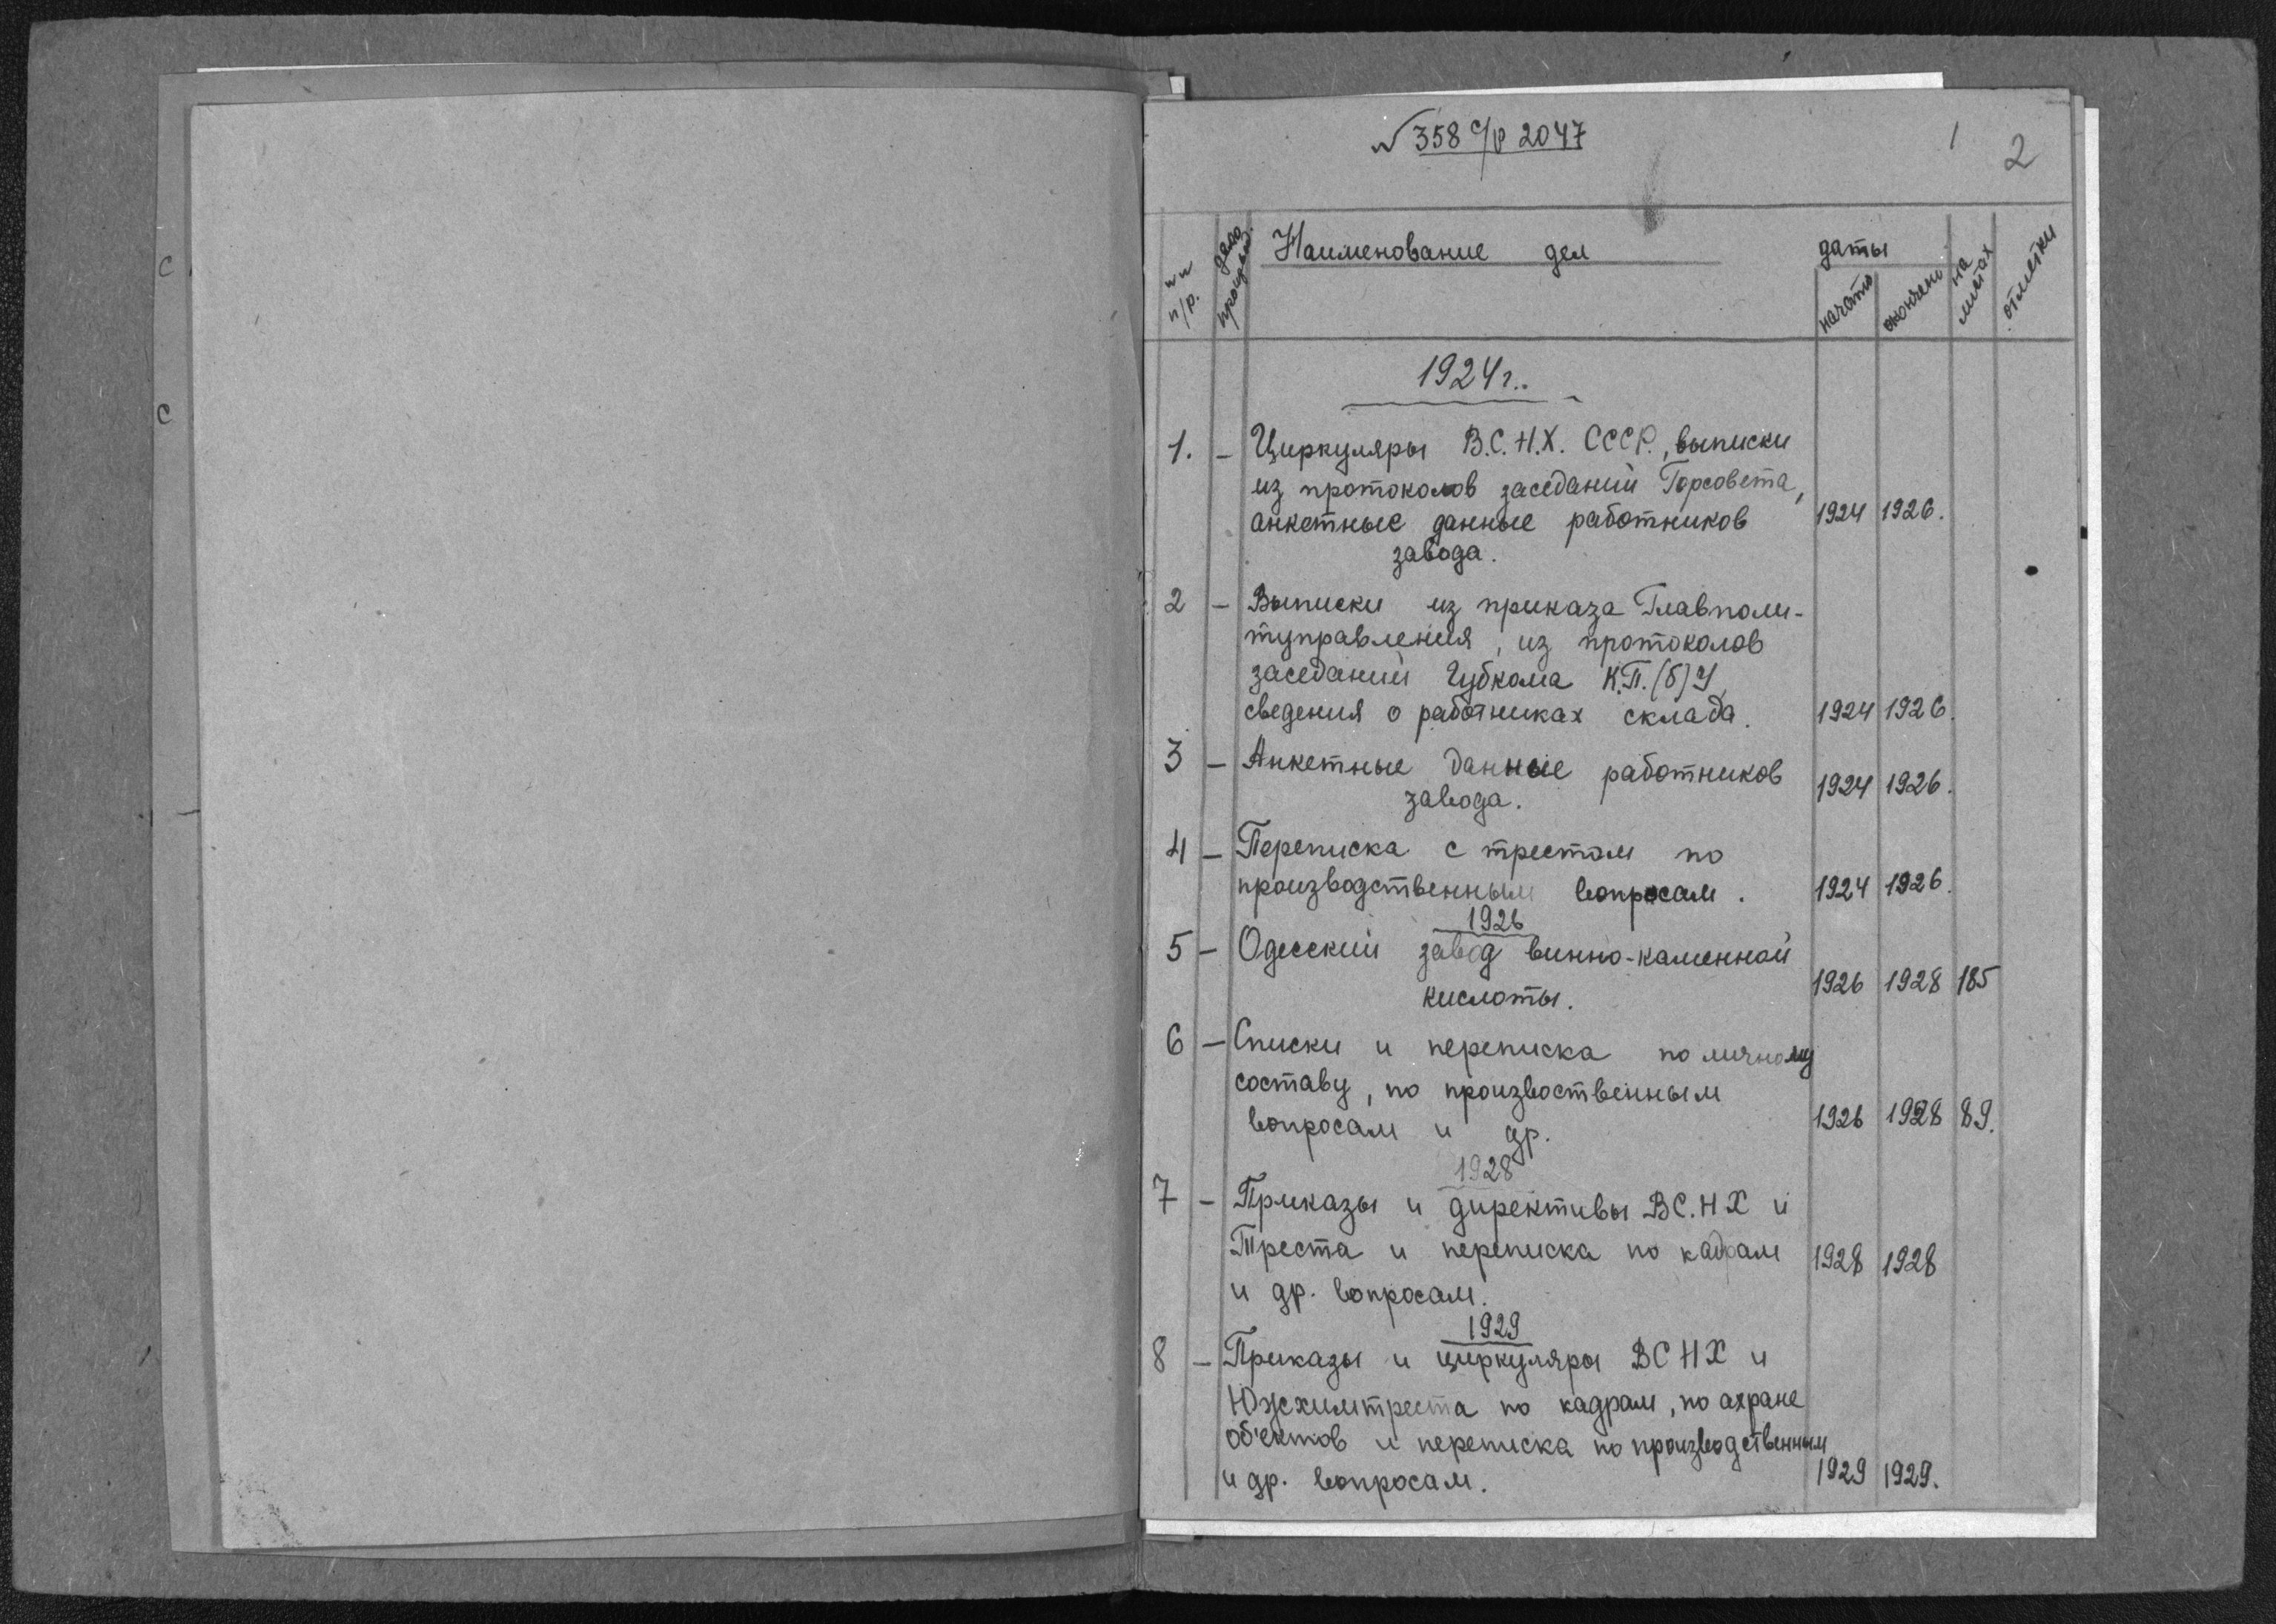 № 358 с/р 2047
1
2
№№ п/р.
дело произвед.
Наименование дел
даты
начато
окончено
на листах
отметки
1924 г.
1. – Циркуляры В.С.Н.Х. СССР., выписки
из протоколов заседаний Горсовета,
анкетные данные работников 1924 1926.
завода.
2 – Выписки из приказа Главполи-
туправления, из протоколов
заседаний Губкома К.П.(б)У
сведения о работниках склада. 1924 1926.
3 – Анкетные данные работников
завода. 1924 1926.
4 – Переписка с трестом по
производственным вопросам. 1924 1926.
1926
5 – Одесский завод винно-каменной
кислоты. 1926 1928 185
6 – Списки и переписка по личному
составу, по произвоственным
вопросам и др. 1926 1928 89.
1928
7 – Приказы и директивы ВС.НХ и
Треста и переписка по кадрам 1928 1928
и др. вопросам.
1929
8 – Приказы и циркуляры ВСНХ и
Южхимтреста по кадрам, по ахране
об'ектов и переписка по производственным
и др. вопросам. 1929 1929.
с
с